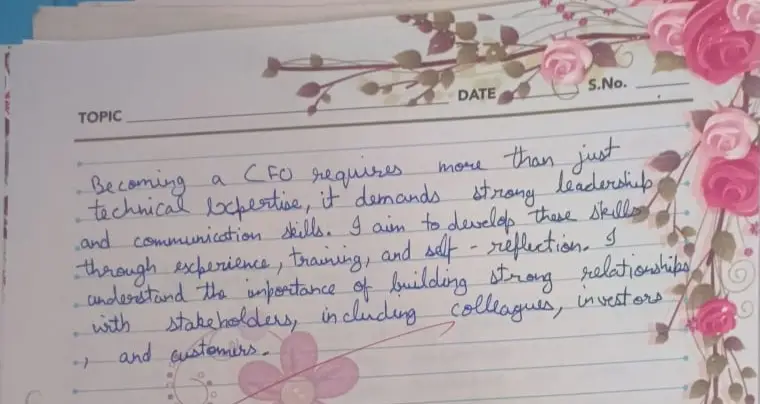 TOPIC
DATE
S.No.
Becoming a CFO requires more than just
technical expertise, it demands strong leadership
and communication skills. I aim to develop these skills
through experience, training, and self - reflection. I
understand the importance of building strong relationships
with stakeholders, including colleagues, investors
, and customers.